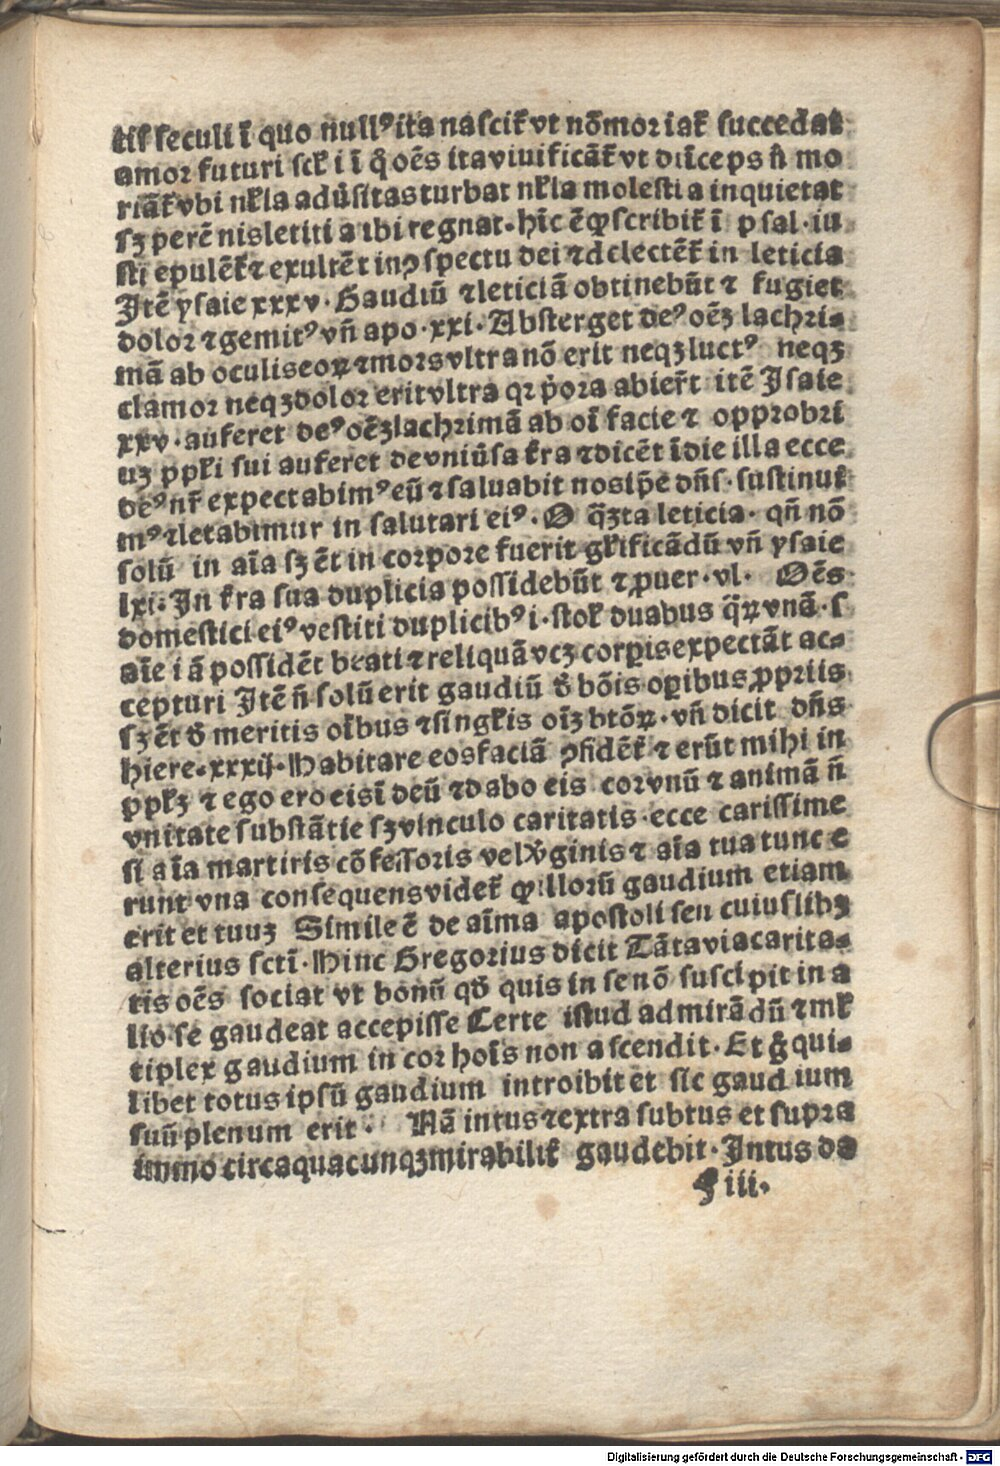 tis seculi ī quo nullꝰ ita nascit᷑ vt nō moriat᷑ succedat
amor futuri scl᷑i ī q̊ oēs ita viuificāt᷑ vt deīceps nō mo
riāt᷑ vbi nl᷑la adūsitas turbat nl᷑la molestia inquietat
sꝫ perēnis letitia ibi regnat. hīc ē ꝙ scribit᷑ ī psal. iu
sti epulēt᷑ ⁊ exultēt in ꝯspectu dei ⁊ delectēt᷑ in leticia
Itē ysaie xxxv. Gaudiū ⁊ leticiā obtinebūt ⁊ fugiet
dolor ⁊ gemitꝰ vn̄ apo. xxi. Absterget deꝰ oēꝫ lachri-
mā ab oculis eoꝝ ⁊ mors vltra nō erit neqꝫ luctꝰ neqꝫ
clamor neqꝫ dolor erit vltra qr p̄ora abier̄t itē Isaie
xxv. auferet deꝰ oēꝫ lachrimā ab oī facie ⁊ opprobri
uꝫ ppl᷑i sui auferet de vniūsa t᷑ra ⁊ dicēt ī die illa ecce
deꝰ nr̄ expectabimꝰ eū ⁊ saluabit nos ip̄e dn̄s. sustinui᷑
mꝰ ⁊ letabimur in salutari eiꝰ. O q̄ꝫta leticia. qn̄ nō
solū in aīa sꝫ ēt in corpore fuerit gl᷑ificādū vn̄ ysaie
lxi. In t᷑ra sua duplicia possidebūt ⁊ ꝓuer. vl. Oēs
domestici eiꝰ vestiti duplicibꝰ i. stol᷑ duabus q̄ꝝ vnā. s
aīe iā possidēt beati ⁊ reliquā vcꝫ corꝑis expectāt ac-
cepturi Itē n̄ solū erit gaudiū đ bōis oꝑibus ꝓpriis
sꝫ ēt đ meritis oībus ⁊ singl᷑is oīꝫ btōꝝ. vn̄ dicit dn̄s
hiere. xxxij. Habitare eos faciā ꝯfidēt᷑ ⁊ erūt mihi in
ppl᷑ꝫ ⁊ ego ero eis ī deū ⁊ dabo eis cor vnū ⁊ animā n̄
vnitate substātie sꝫ vinculo caritatis. ecce carissime
si aīa martiris cōfessoris vel v̄ginis ⁊ aīa tua tunc e
runt vna consequens videt᷑ ꝙ illorū gaudium etiam
erit et tuuꝫ Simile ē de aīma apostoli seu cuiuslibꝫ
alterius sctī. Hinc Gregorius dicit Tāta via carita-
tis oēs sociat vt bonū qđ quis in se nō suscipit in a
lio se gaudeat accepisse Certe istud admirādū ⁊ ml᷑
tiplex gaudium in cor hoīs non ascendit. Et g̊ qui-
libet totus ipsū gaudium introibit et sic gaudium
suū plenum erit. Nā intus ⁊ extra subtus et supra
immo circaquacunqꝫ mirabilit᷑ gaudebit. Intus de
iii.
Digitalisierung gefördert durch die Deutsche Forschungsgemeinschaft - DFG